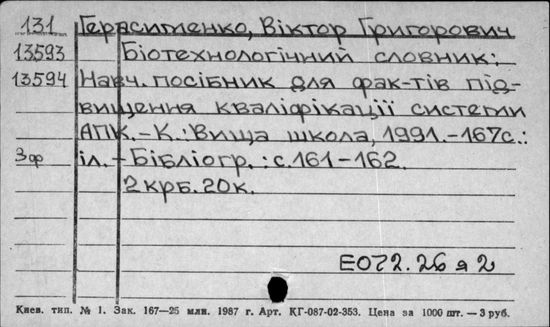 131 Герасименко, Віктор Григорович
13593 Біотехнологічний словник:
13594 Навч. посібник для фак-тів під-
вищення кваліфікації системи
АПК.-К.: Вища школа, 1991.-167с.:
3ф іл.-Бібліогр.: с.161-162.
2крб.20к.
Е072.26я2
Киев. тип. № 1. Зак. 167—25 млн. 1987 г. Арт. КГ-087-02-353. Цена за 1000 шт. — 3 руб.